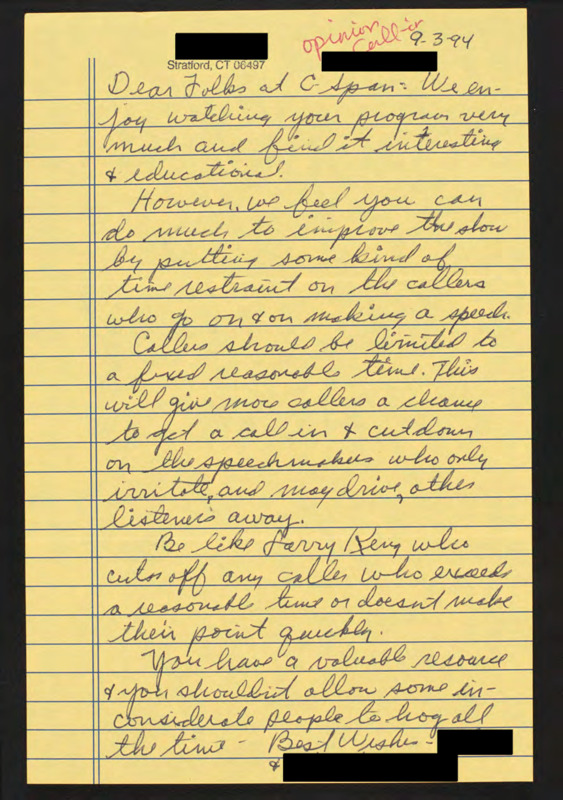 opinion
Call-in
9-3-94
Stratford, CT 06497
Dear Folks at C-Span: We en-
joy watching your program very
much and find it interesting
& educational.
However, we feel you can
do much to improve the show
by putting some kind of
time restraint on the callers
who go on & on making a speech.
Callers should be limited to
a fixed reasonable time. This
will give more callers a chance
to get a call in & cut down
on the speechmakers who only
irritate, and may drive, other
listeners away.
Be like Larry King who
cuts off any caller who exceeds
a reasonable time or doesn't make
their point quickly.
You have a valuable resource
& you shouldn't allow some in-
considerate people to hog all
the time - Best Wishes -
&